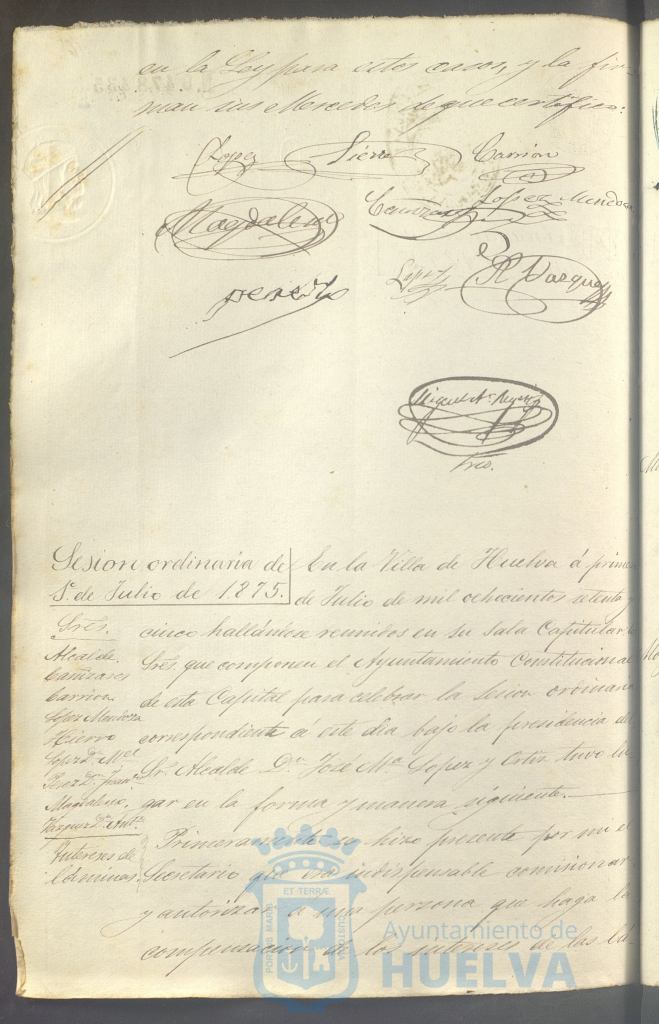 en la Ley para estos casos, y la fir-
man sus Mercedes de que certifico:
Lopez
Sierra
Carrion
Magdalena
Cañizares
Lopez Mendoza
Lopez
R Vazquez
perez
Miguel
Srio.
Sesion ordinaria de
1º de Julio de 1875.
Sres.
Alcalde.
Cañizares
Carrion
Lopez Mendoza
Hierro
Lopez Dn. Ml.
Perez Dn. Juan
Magdalena.
Vazquez Dn. Antº.
Intereses de
láminas
En la Villa de Huelva á primero
de Julio de mil ochocientos setenta y
cinco hallándose reunidos en su Sala Capitular
Sres. que componen el Ayuntamiento Constitucional
de esta Capital para celebrar la sesion ordinaria
correspondiente á este dia bajo la presidencia del
Sr. Alcalde Dn. José Mª. Lopez y Ortiz tuvo lu-
gar en la forma y manera siguiente.
Primeramente se hizo presente por mi el
Secretario que era indispensable comisionar
y autorizar á una persona que haga la
compensacion de los intereses de las lá-
PORTUS MARIS
ET TERRÆ
CUSTODIA
Ayuntamiento de
HUELVA